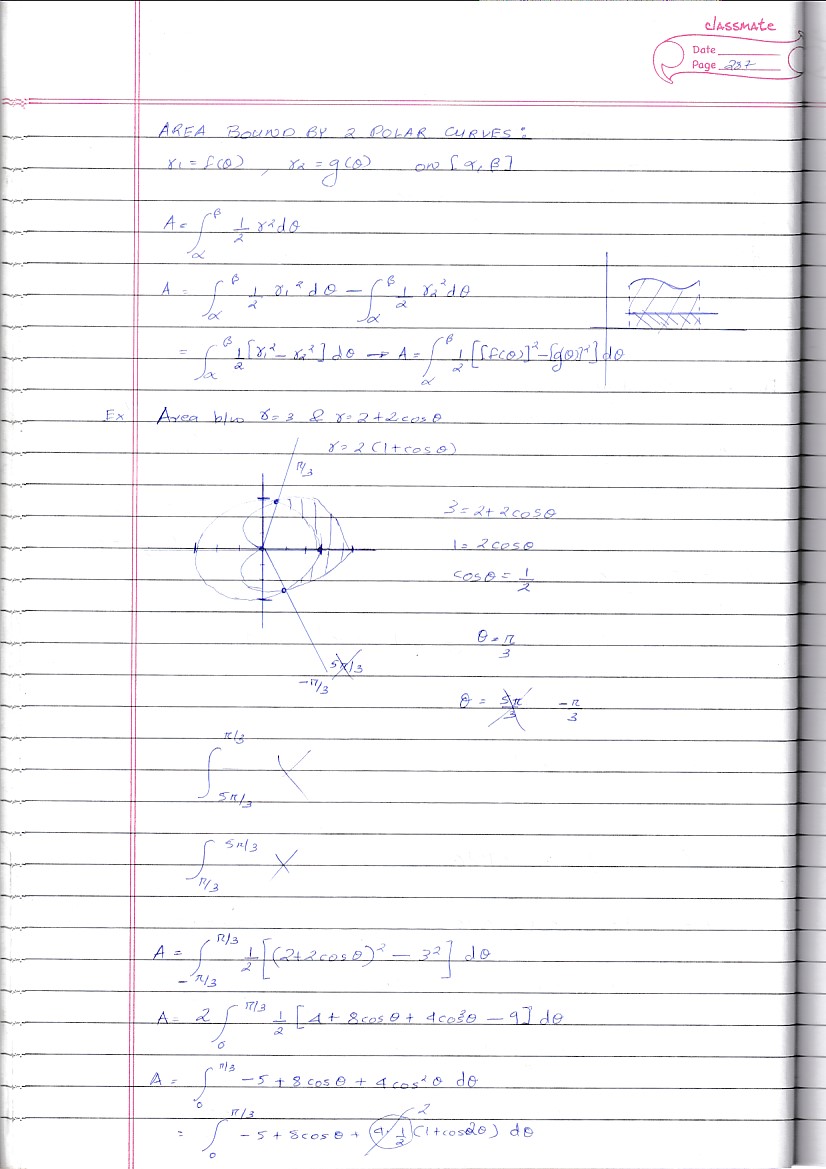 classmate
Date
Page 287
AREA BOUND BY 2 POLAR CURVES:
r₁ = f(θ) , r₂ = g(θ) on [α, β]
A = ∫_α^β 1/2 r² dθ
A = ∫_α^β 1/2 r₁² dθ − ∫_α^β 1/2 r₂² dθ
= ∫_α^β 1/2 [r₁² − r₂²] dθ → A = ∫_α^β 1/2 [[f(θ)]² − [g(θ)]²] dθ
Ex Area b/w r = 3 & r = 2 + 2cosθ
r = 2(1 + cosθ)
π/3
3 = 2 + 2cosθ
1 = 2cosθ
cosθ = 1/2
θ = π/3
5π/3
−π/3
θ = 5π/3 −π/3
∫_{5π/3}^{π/3} ×
∫_{π/3}^{5π/3} ×
A = ∫_{−π/3}^{π/3} 1/2 [(2+2cosθ)² − 3²] dθ
A = 2 ∫_0^{π/3} 1/2 [4 + 8cosθ + 4cos²θ − 9] dθ
A = ∫_0^{π/3} −5 + 8cosθ + 4cos²θ dθ
= ∫_0^{π/3} −5 + 8cosθ + 4·1/2 2 (1+cos2θ) dθ